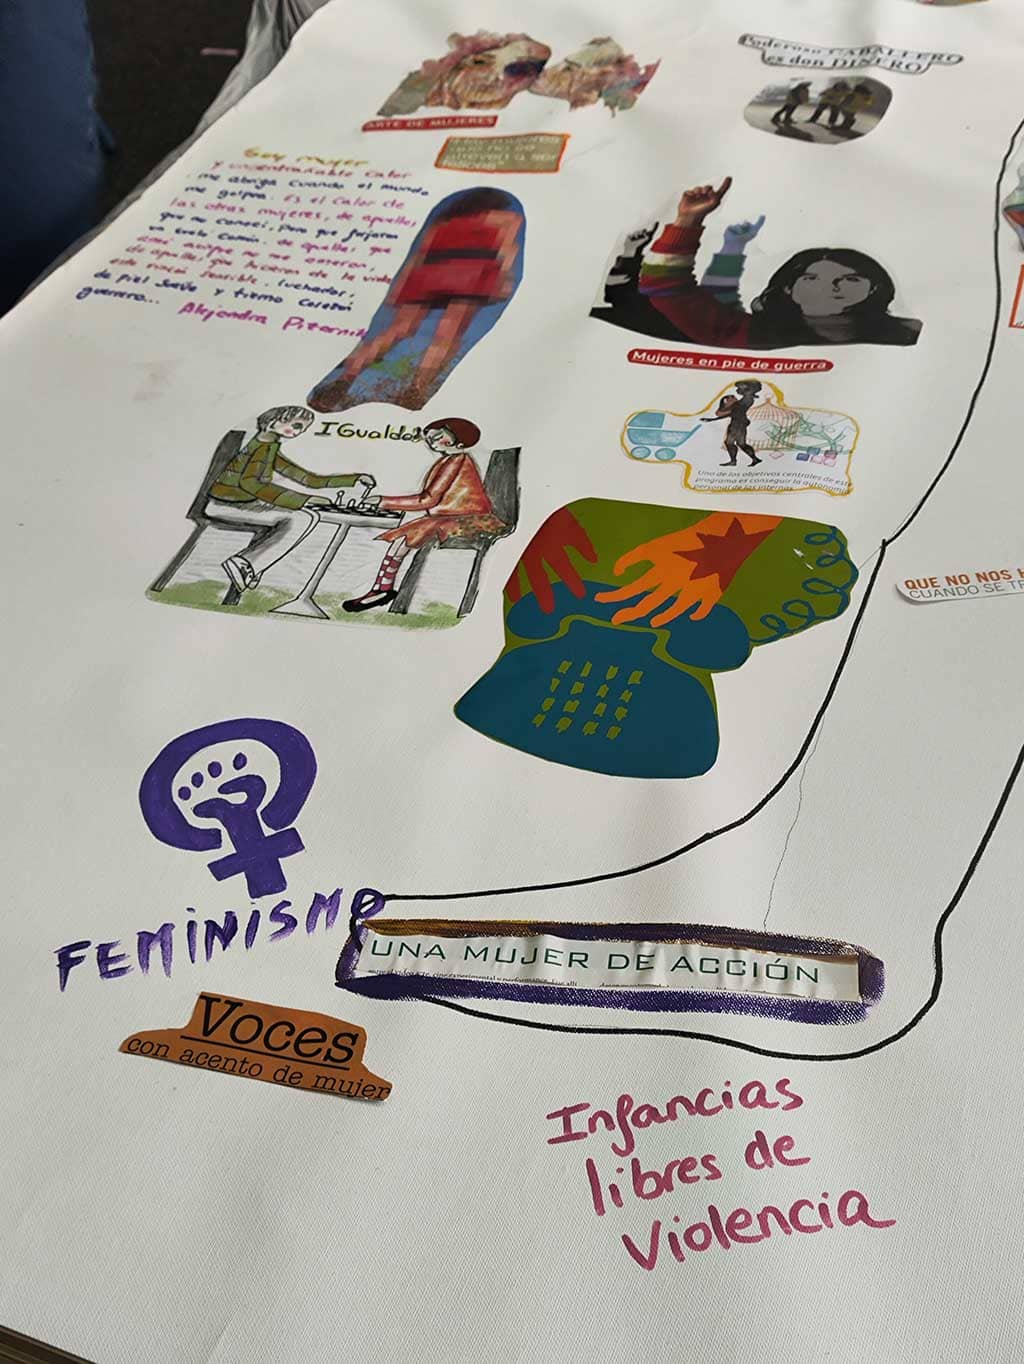 Poderoso CABALLERO
es don DINERO
ARTE DE MUJERES
Soy mujer
y un entrañable calor
me abriga cuando el mundo
me golpea. Es el calor de
las otras mujeres, de aquellas
que no conocí, pero que forjaron
un suelo común. de aquellas que
amé aunque no me amaron,
de aquellas que hicieron de la vida
este rincón sensible, luchador,
de piel suave y tierno corazón
guerrero...
Alejandra Pizarnik
Mujeres en pie de guerra
IGualdad
Uno de los objetivos centrales de este
programa es conseguir la autonomía
personal de las internas
QUE NO NOS
CUANDO SE
FEMINISMO
UNA MUJER DE ACCIÓN
Voces
con acento de mujer
Infancias
libres de
Violencia